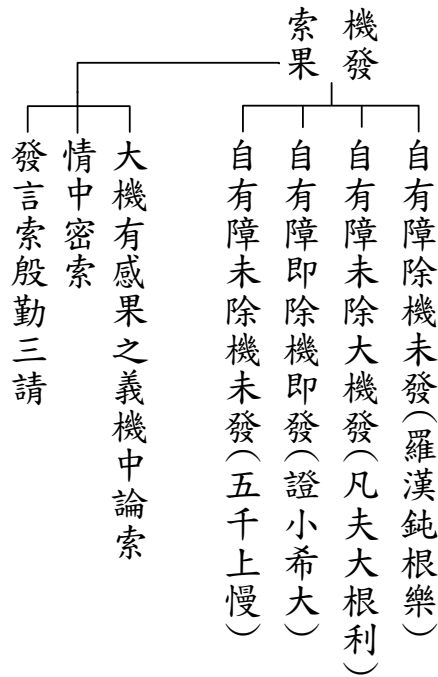 機發
索果
自有障除機未發(羅漢鈍根樂)
自有障未除大機發(凡夫大根利)
自有障即除機即發(證小希大)
自有障未除機未發(五千上慢)
大機有感果之義機中論索
情中密索
發言索殷勤三請